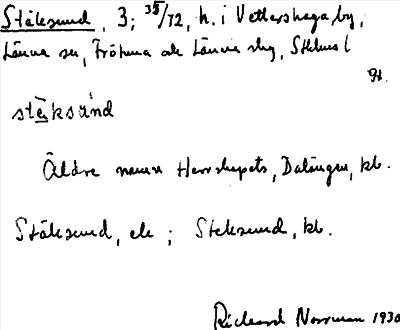 Stäksund, 3; 35/72, h. i Vettershaga by,
Länna sn, Frötuna och Länna slg, Sthlms l
stäksúnd
Äldre namn Herrskapets, Dalängen, kb.
Stäksund, ek ; Steksund, kb.
Rickard Norrman 1930